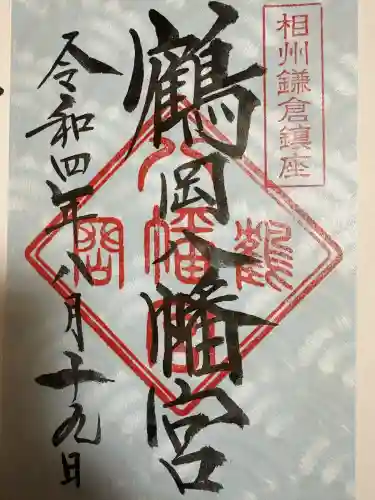 相州鎌倉鎮座
鶴岡八幡宮
令和四年八月十九日
鶴
八幡宮
岡